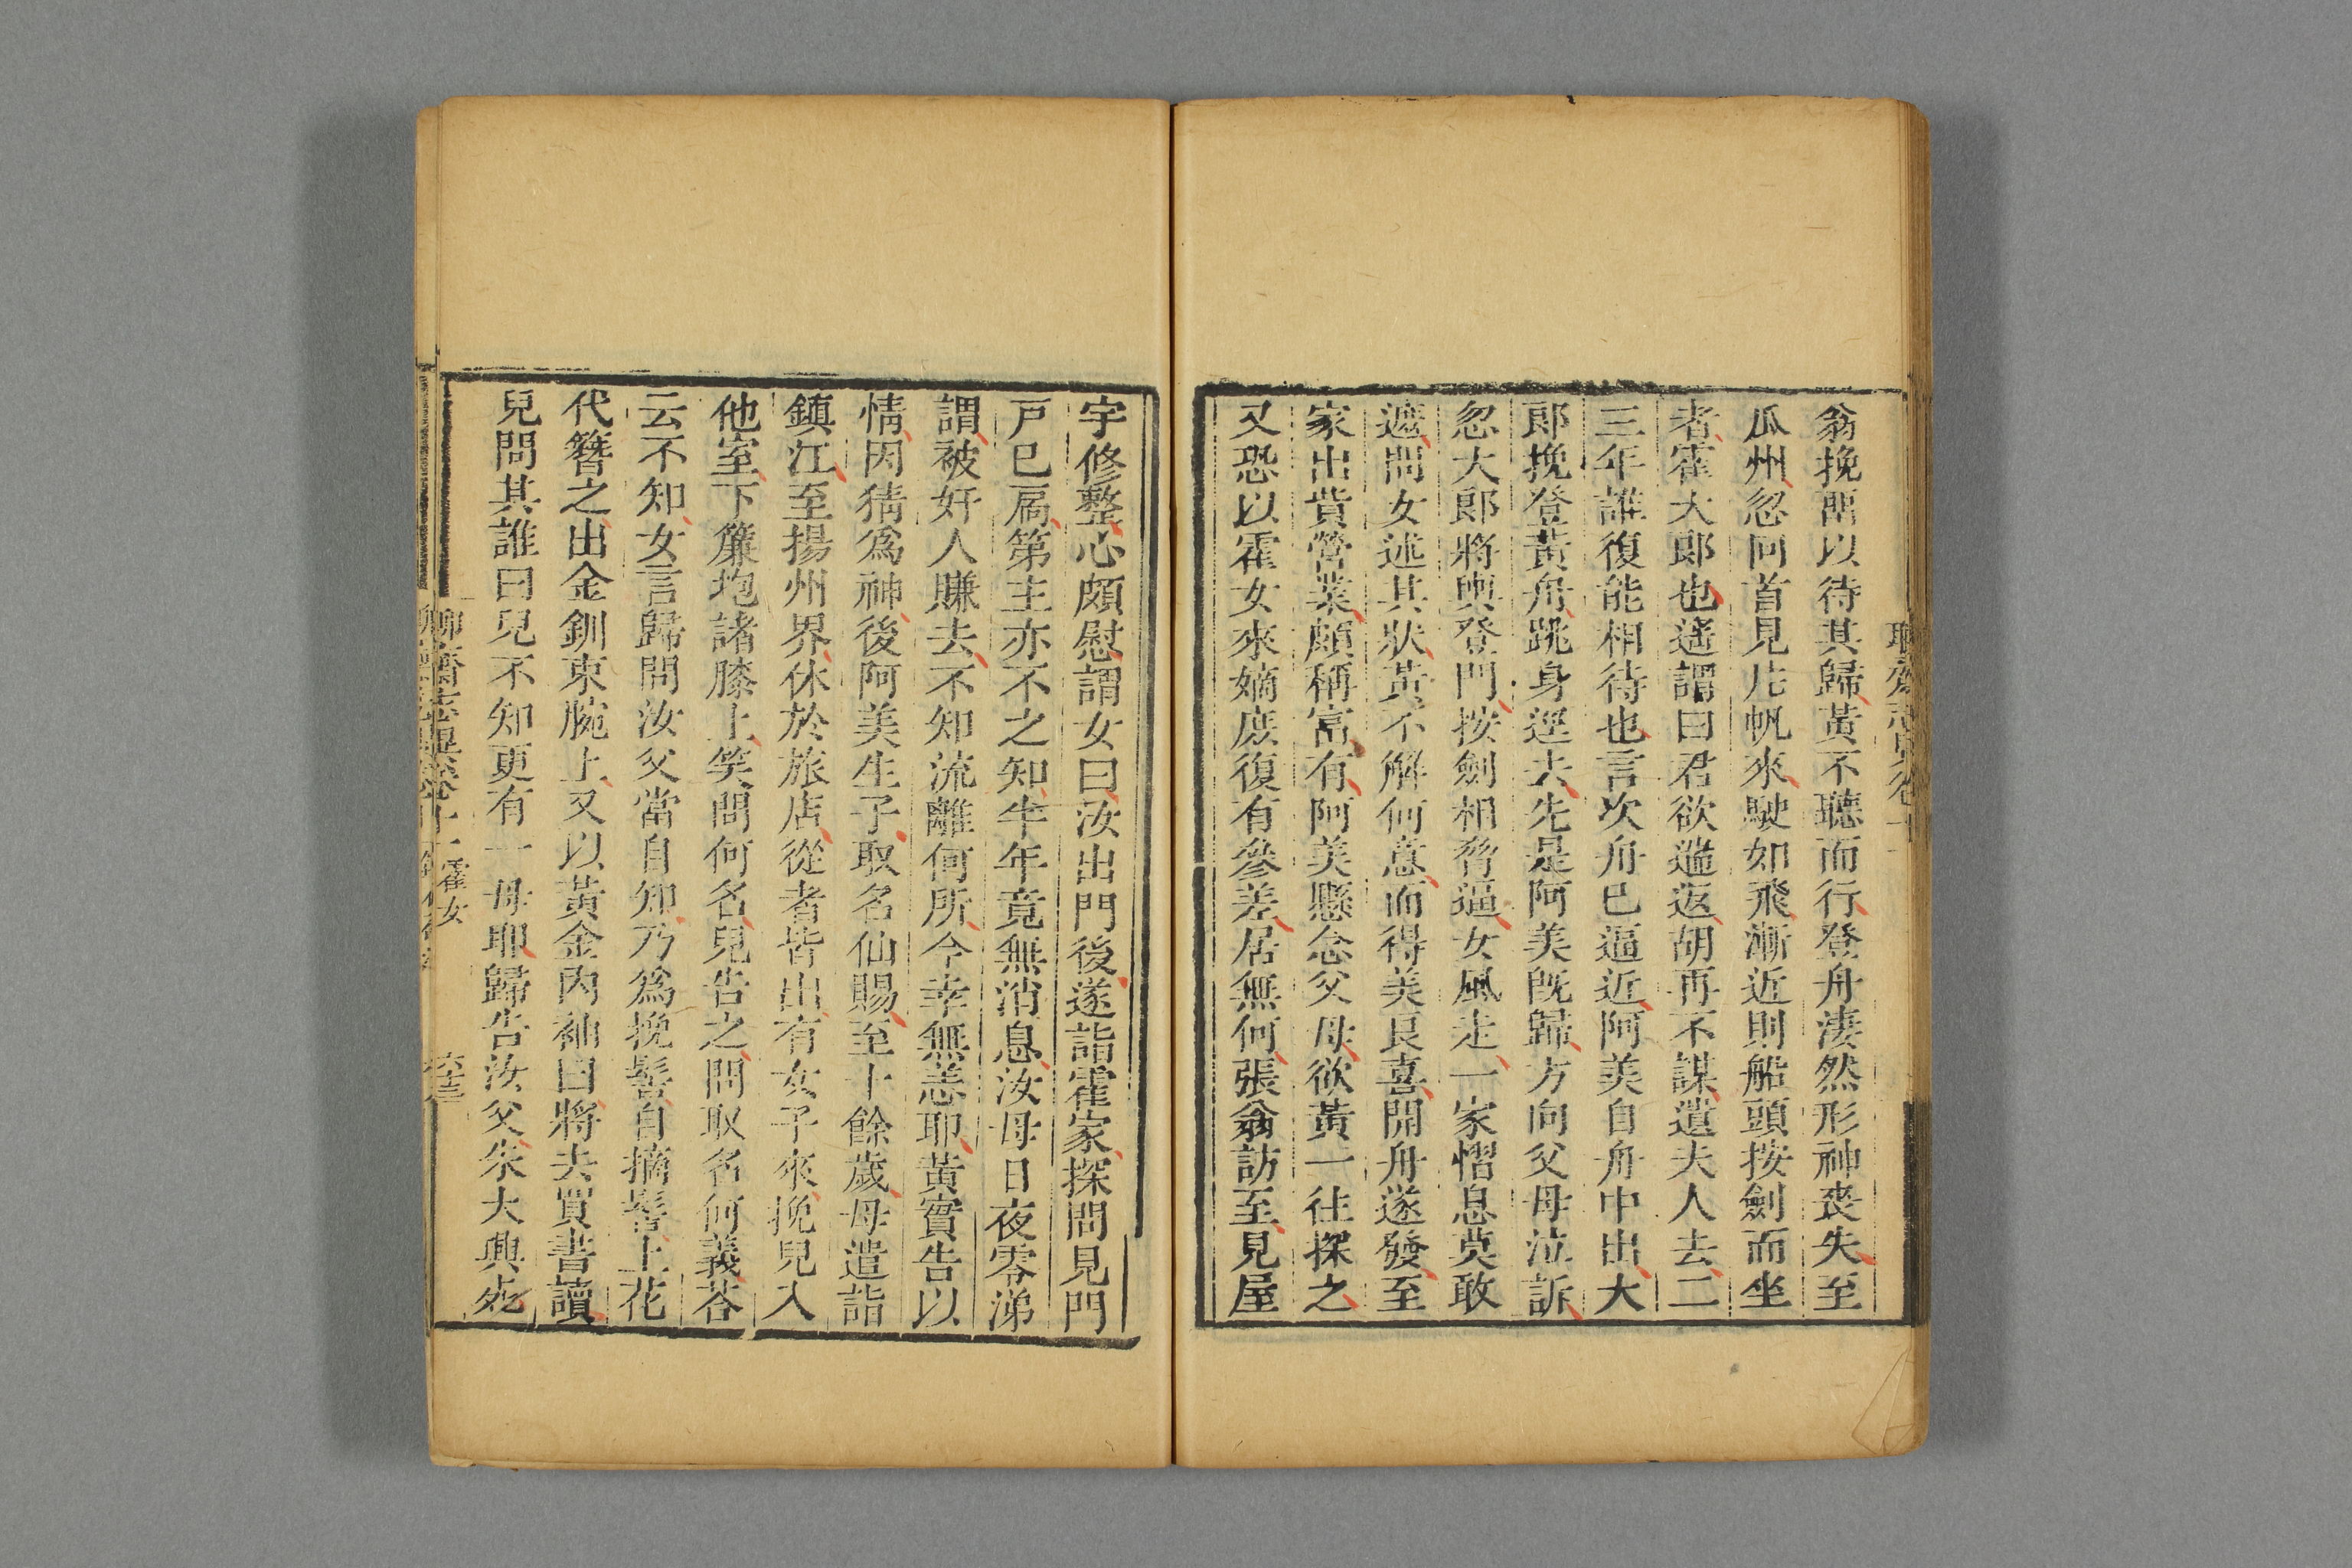 翁挽畱以待其歸黃不聽而行登舟淒然形神喪失至
瓜州忽回首見片帆來駛如飛漸近則船頭按劍而坐
者霍大郎也遙謂曰君欲遄返胡再不謀遺夫人去二
三年誰復能相待也言次舟已逼近阿美自舟中出大
郎挽登黃舟跳身逕去先是阿美旣歸方向父母泣訴
忽大郎將輿登門按劍相脅逼女風走一家慴息莫敢
遮問女述其狀黃不解何意而得美良喜開舟遂發至
家出貲營業頗稱富有阿美懸念父母欲黃一往探之
又恐以霍女來嫡庶復有參差居無何張翁訪至見屋
宇修整心頗慰謂女曰汝出門後遂詣霍家探問見門
戸已扃第主亦不之知半年竟無消息汝母日夜零涕
謂被奸人賺去不知流離何所今幸無恙耶黃實告以
情因猜爲神後阿美生子取名仙賜至十餘歲母遣詣
鎮江至揚州界休於旅店從者皆出有女子來挽兒入
他室下簾抱諸膝上笑問何名兒告之問取名何義荅
云不知女言歸問汝父當自知乃爲挽髻自摘髻上花
代簪之出金釧束腕上又以黃金內袖曰將去買書讀
兒問其誰曰兒不知更有一母耶歸告汝父朱大興死
聊齋志異卷十一 霍女